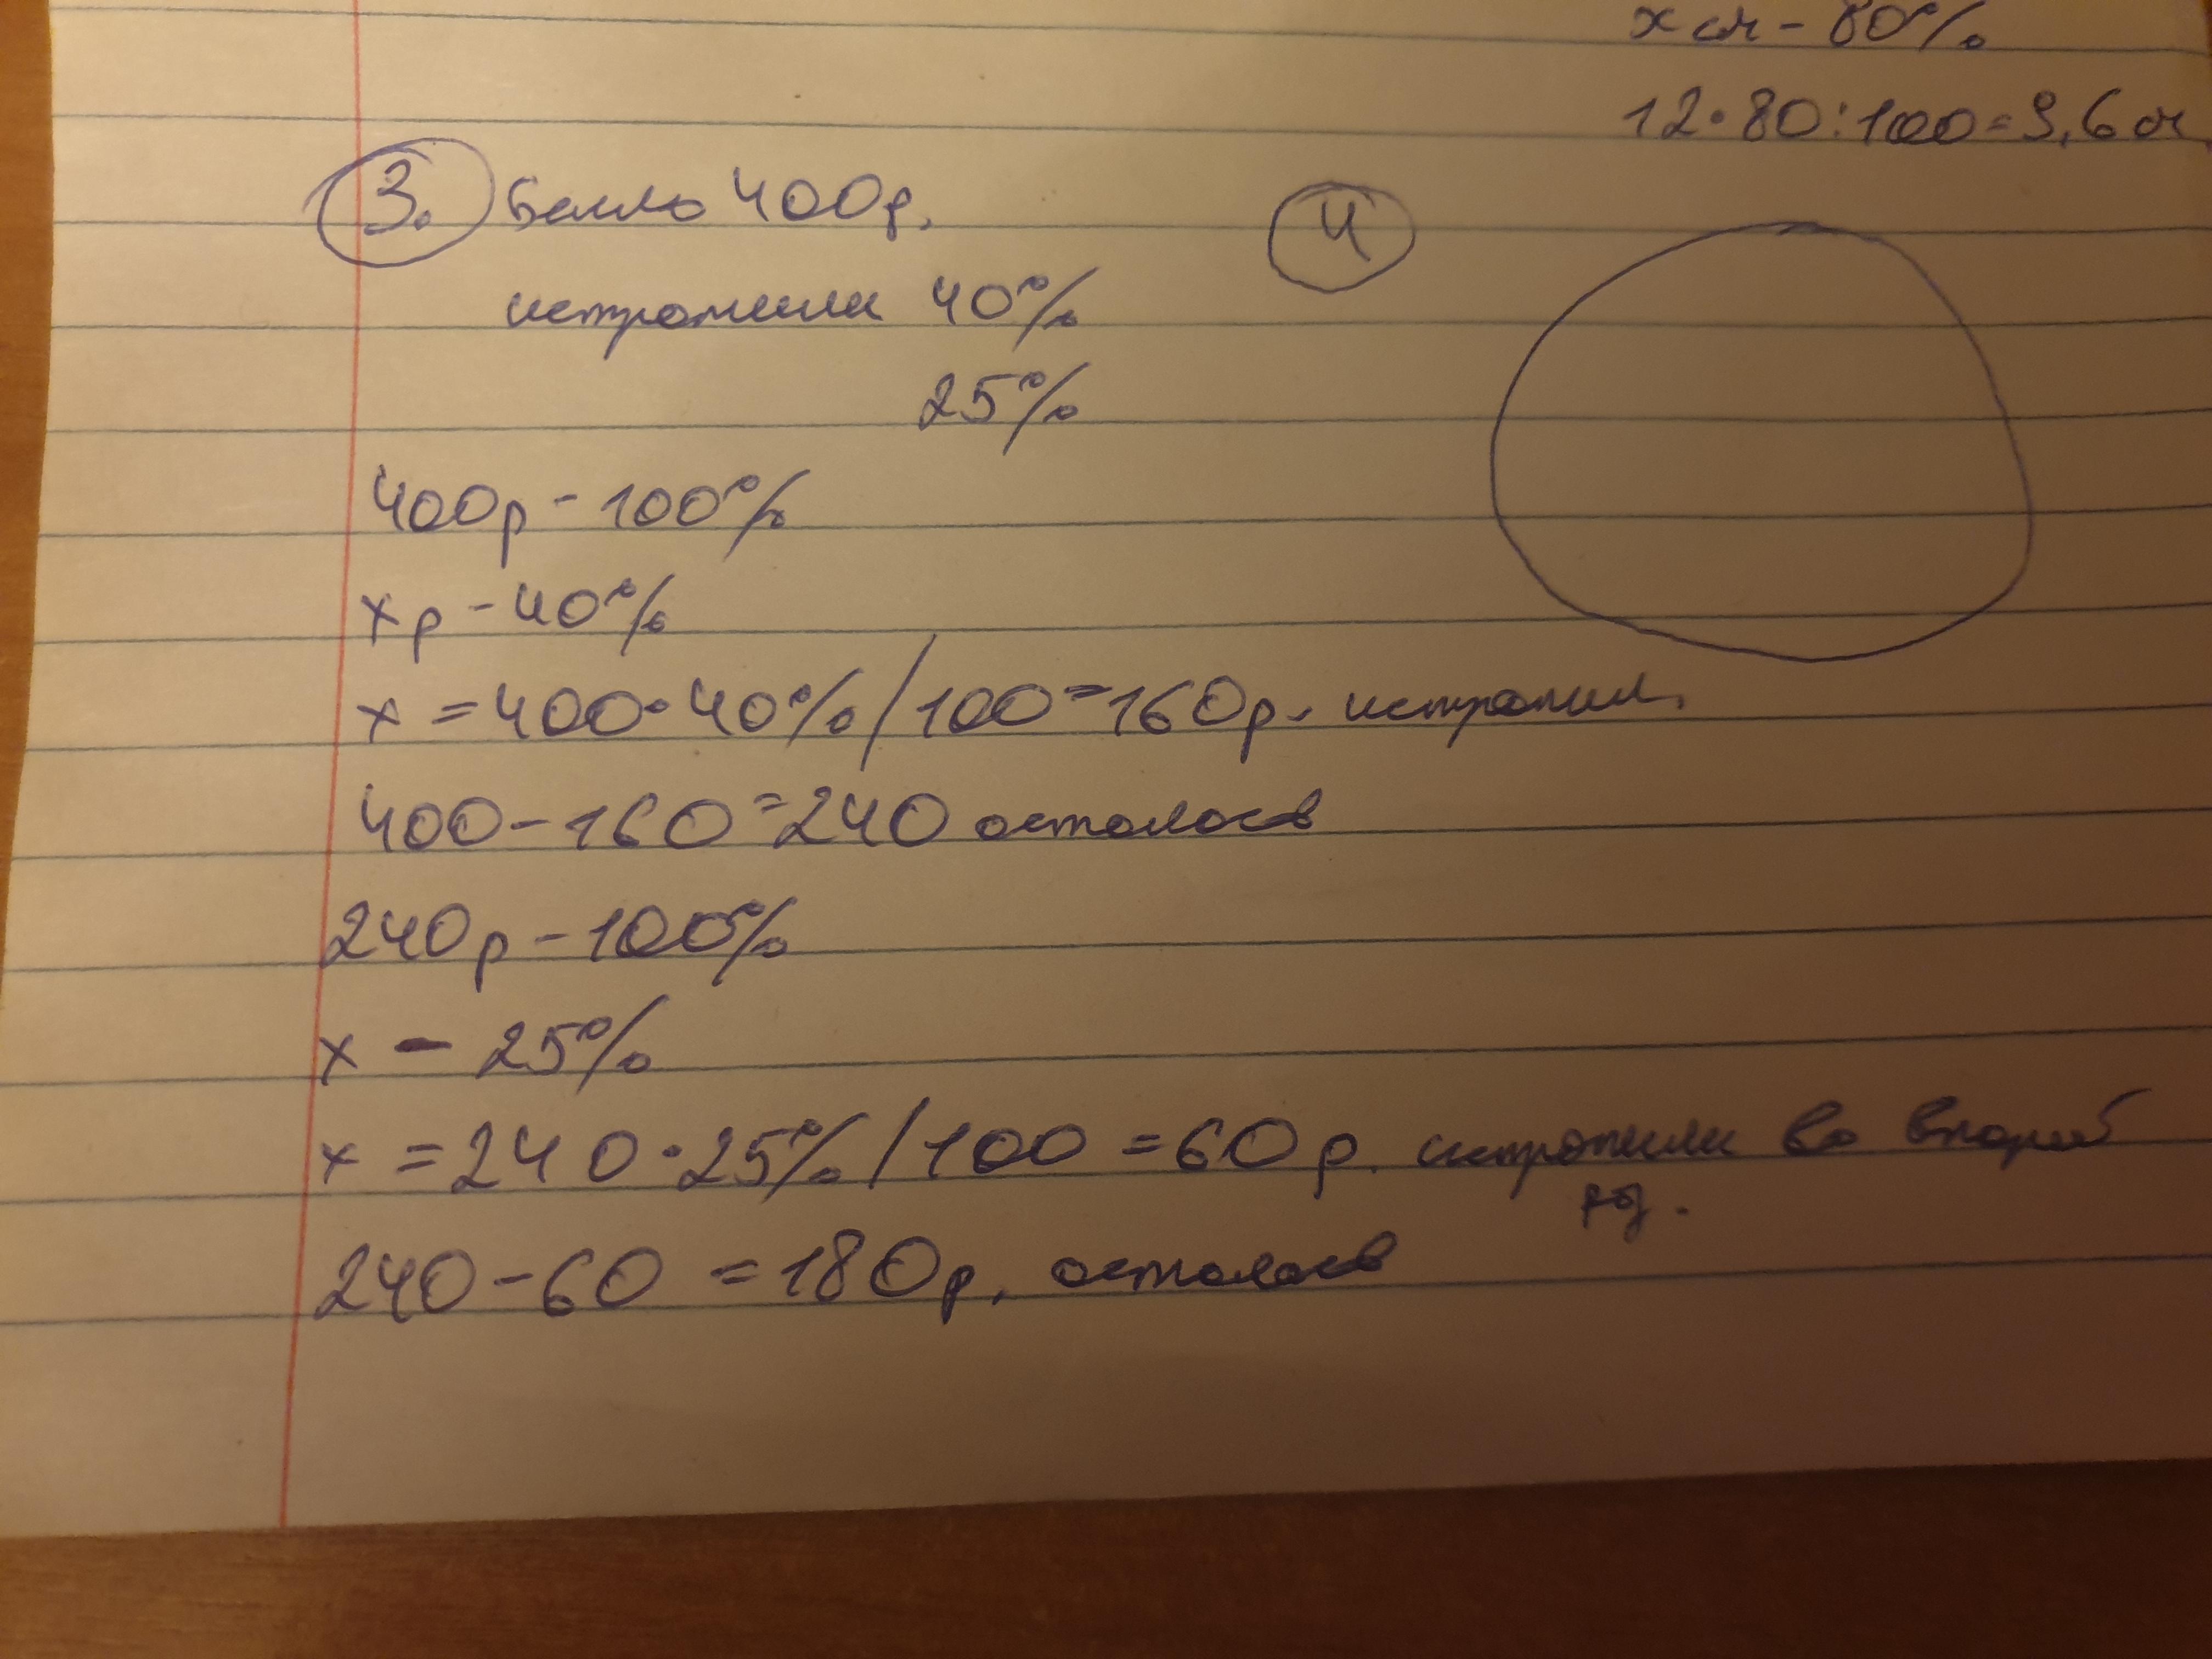 x см - 80%
12·80:100=9,6 см
3. было 400р.
истратили 40%
25%
400р - 100%
xр - 40%
x = 400·40%/100=160р. истратил.
400-160=240 осталось
240р - 100%
x - 25%
x = 240·25%/100=60р. истратили во второй
240-60=180р. осталось
4